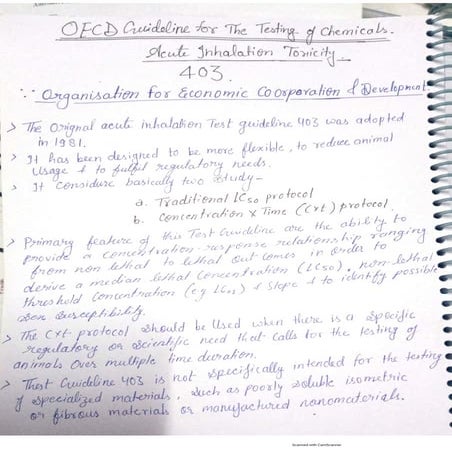 OECD Guideline for The Testing of Chemicals.
Acute Inhalation Toxicity
403.
∵ Organisation for Economic Coorporation & Development
> The Orignal acute inhalation Test guideline 403 was adopted
in 1981.
> It has been designed to be more flexible, to reduce animal
Usage & to fulfil regulatory needs.
> It considure basically two study-
a. Traditional LC50 protocol
b. Concentration x Time (Cxt) protocol.
> Primary feature of this Test Guideline are the ability to
provide a concentration-response relationship ranging
from non lethal to lethal out comes in order to
derive a median lethal concentration (LC50), non-lethal
threshold concentration (eg LC01) & slope & to identify possible
sex susceptibility.
> The Cxt protocol should be used when there is a specific
regulatory or scientific need that calls for the testing of
animals over multiple time duration.
> Thest Guideline 403 is not specifically intended for the testing
of specialized materials, such as poorly soluble isometric
or fibrous materials or manufactured nanomaterials.
Scanned with CamScanner